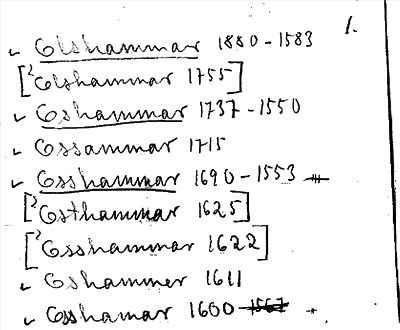 1.
Olshammar 1880-1583
[²Olshammar 1755]
Oshammar 1737-1550
Ossammar 1715
Osshammar 1690-1553
[²Osthammar 1625]
[²Osshammar 1622]
Oshammer 1611
Osshamar 1600-1567